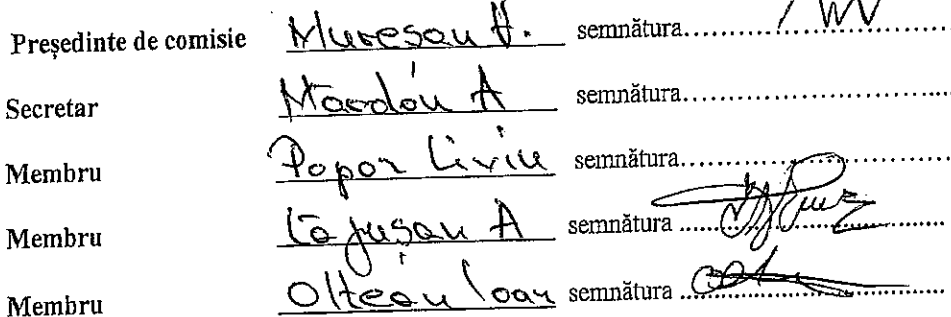 Președinte de comisie Mureșan H. semnătura....................
Secretar Mardan A semnătura....................
Membru Popor Liviu semnătura....................
Membru Lăjușan A semnătura ....................
Membru Oltean Ioan semnătura ....................